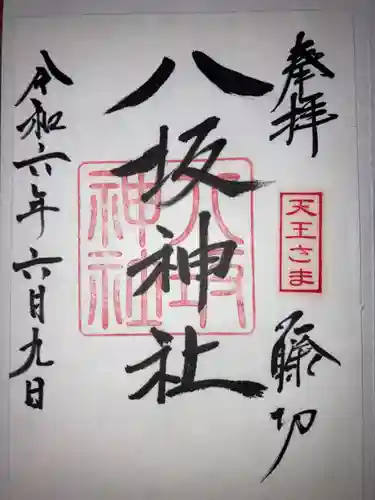 奉拝
天王さま
藤切
八坂神社
八坂神社
令和六年六月九日